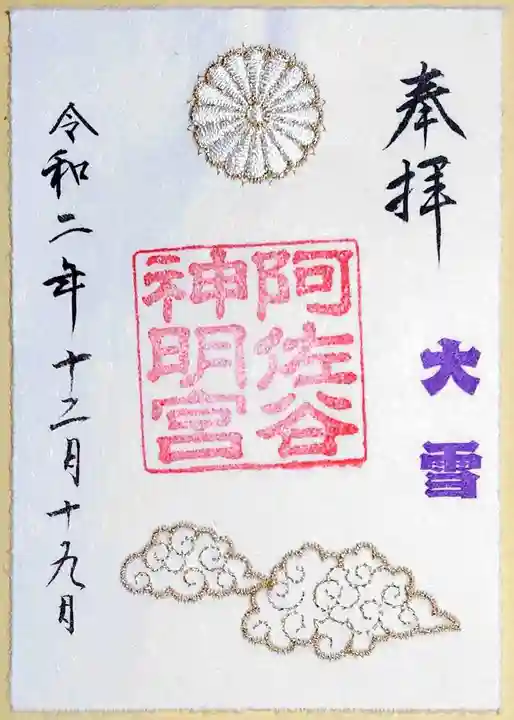 奉拝
大雪
阿佐谷
神明宮
令和二年十二月十九日